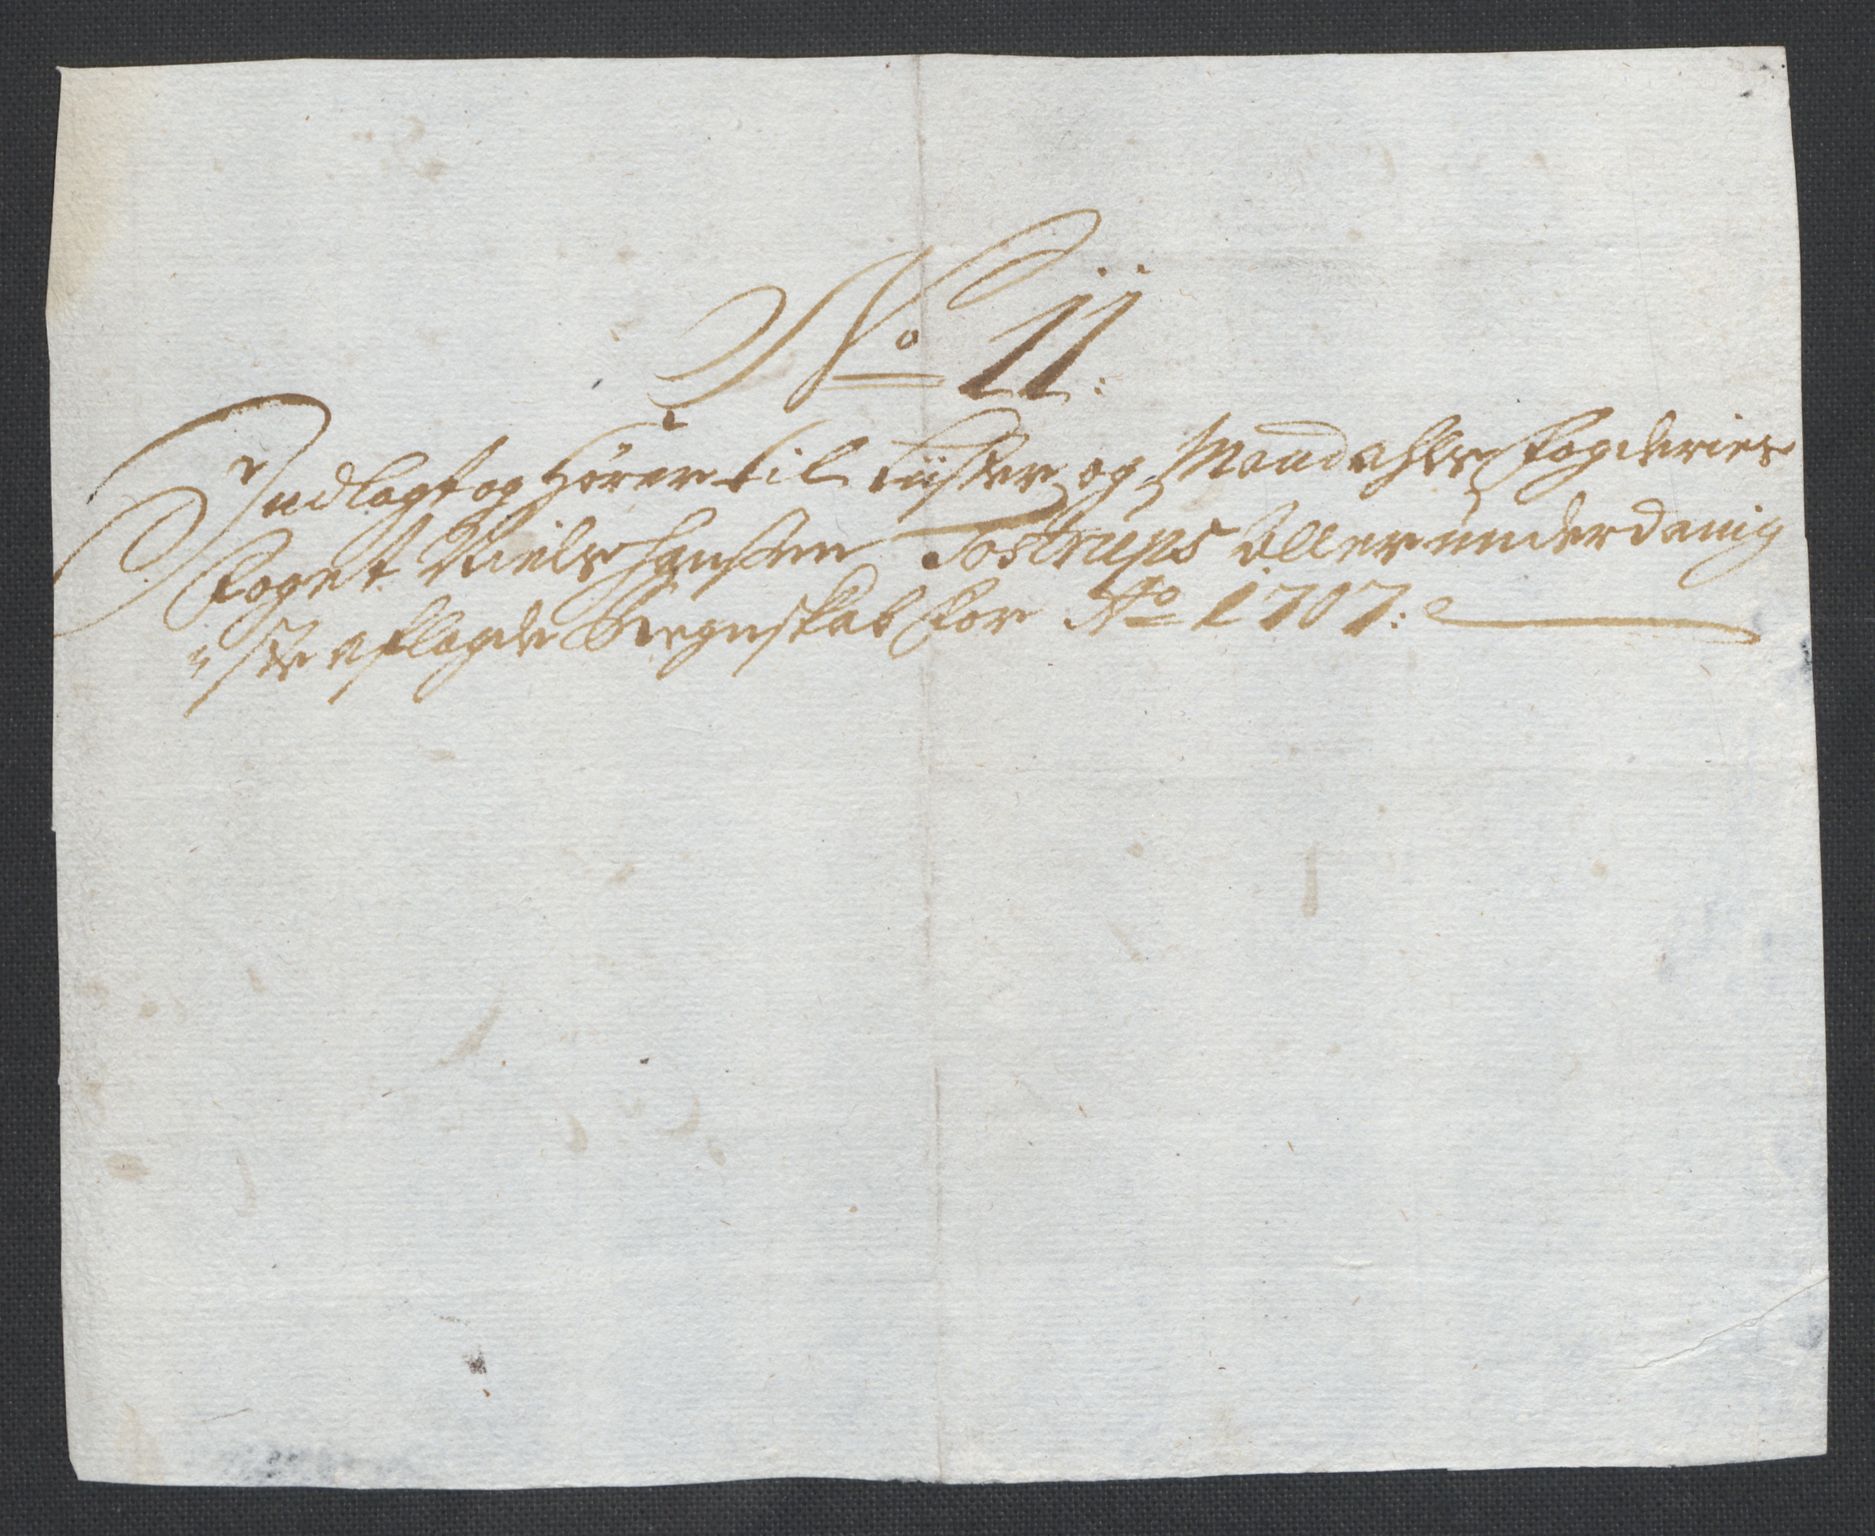 No 11:
Indlagt og Hører til Lister og Mandahls Fogderies
Foget Niels Hansen Tostrups Allerunderdanig
iste aflagde Regnskab for Ao 1707: